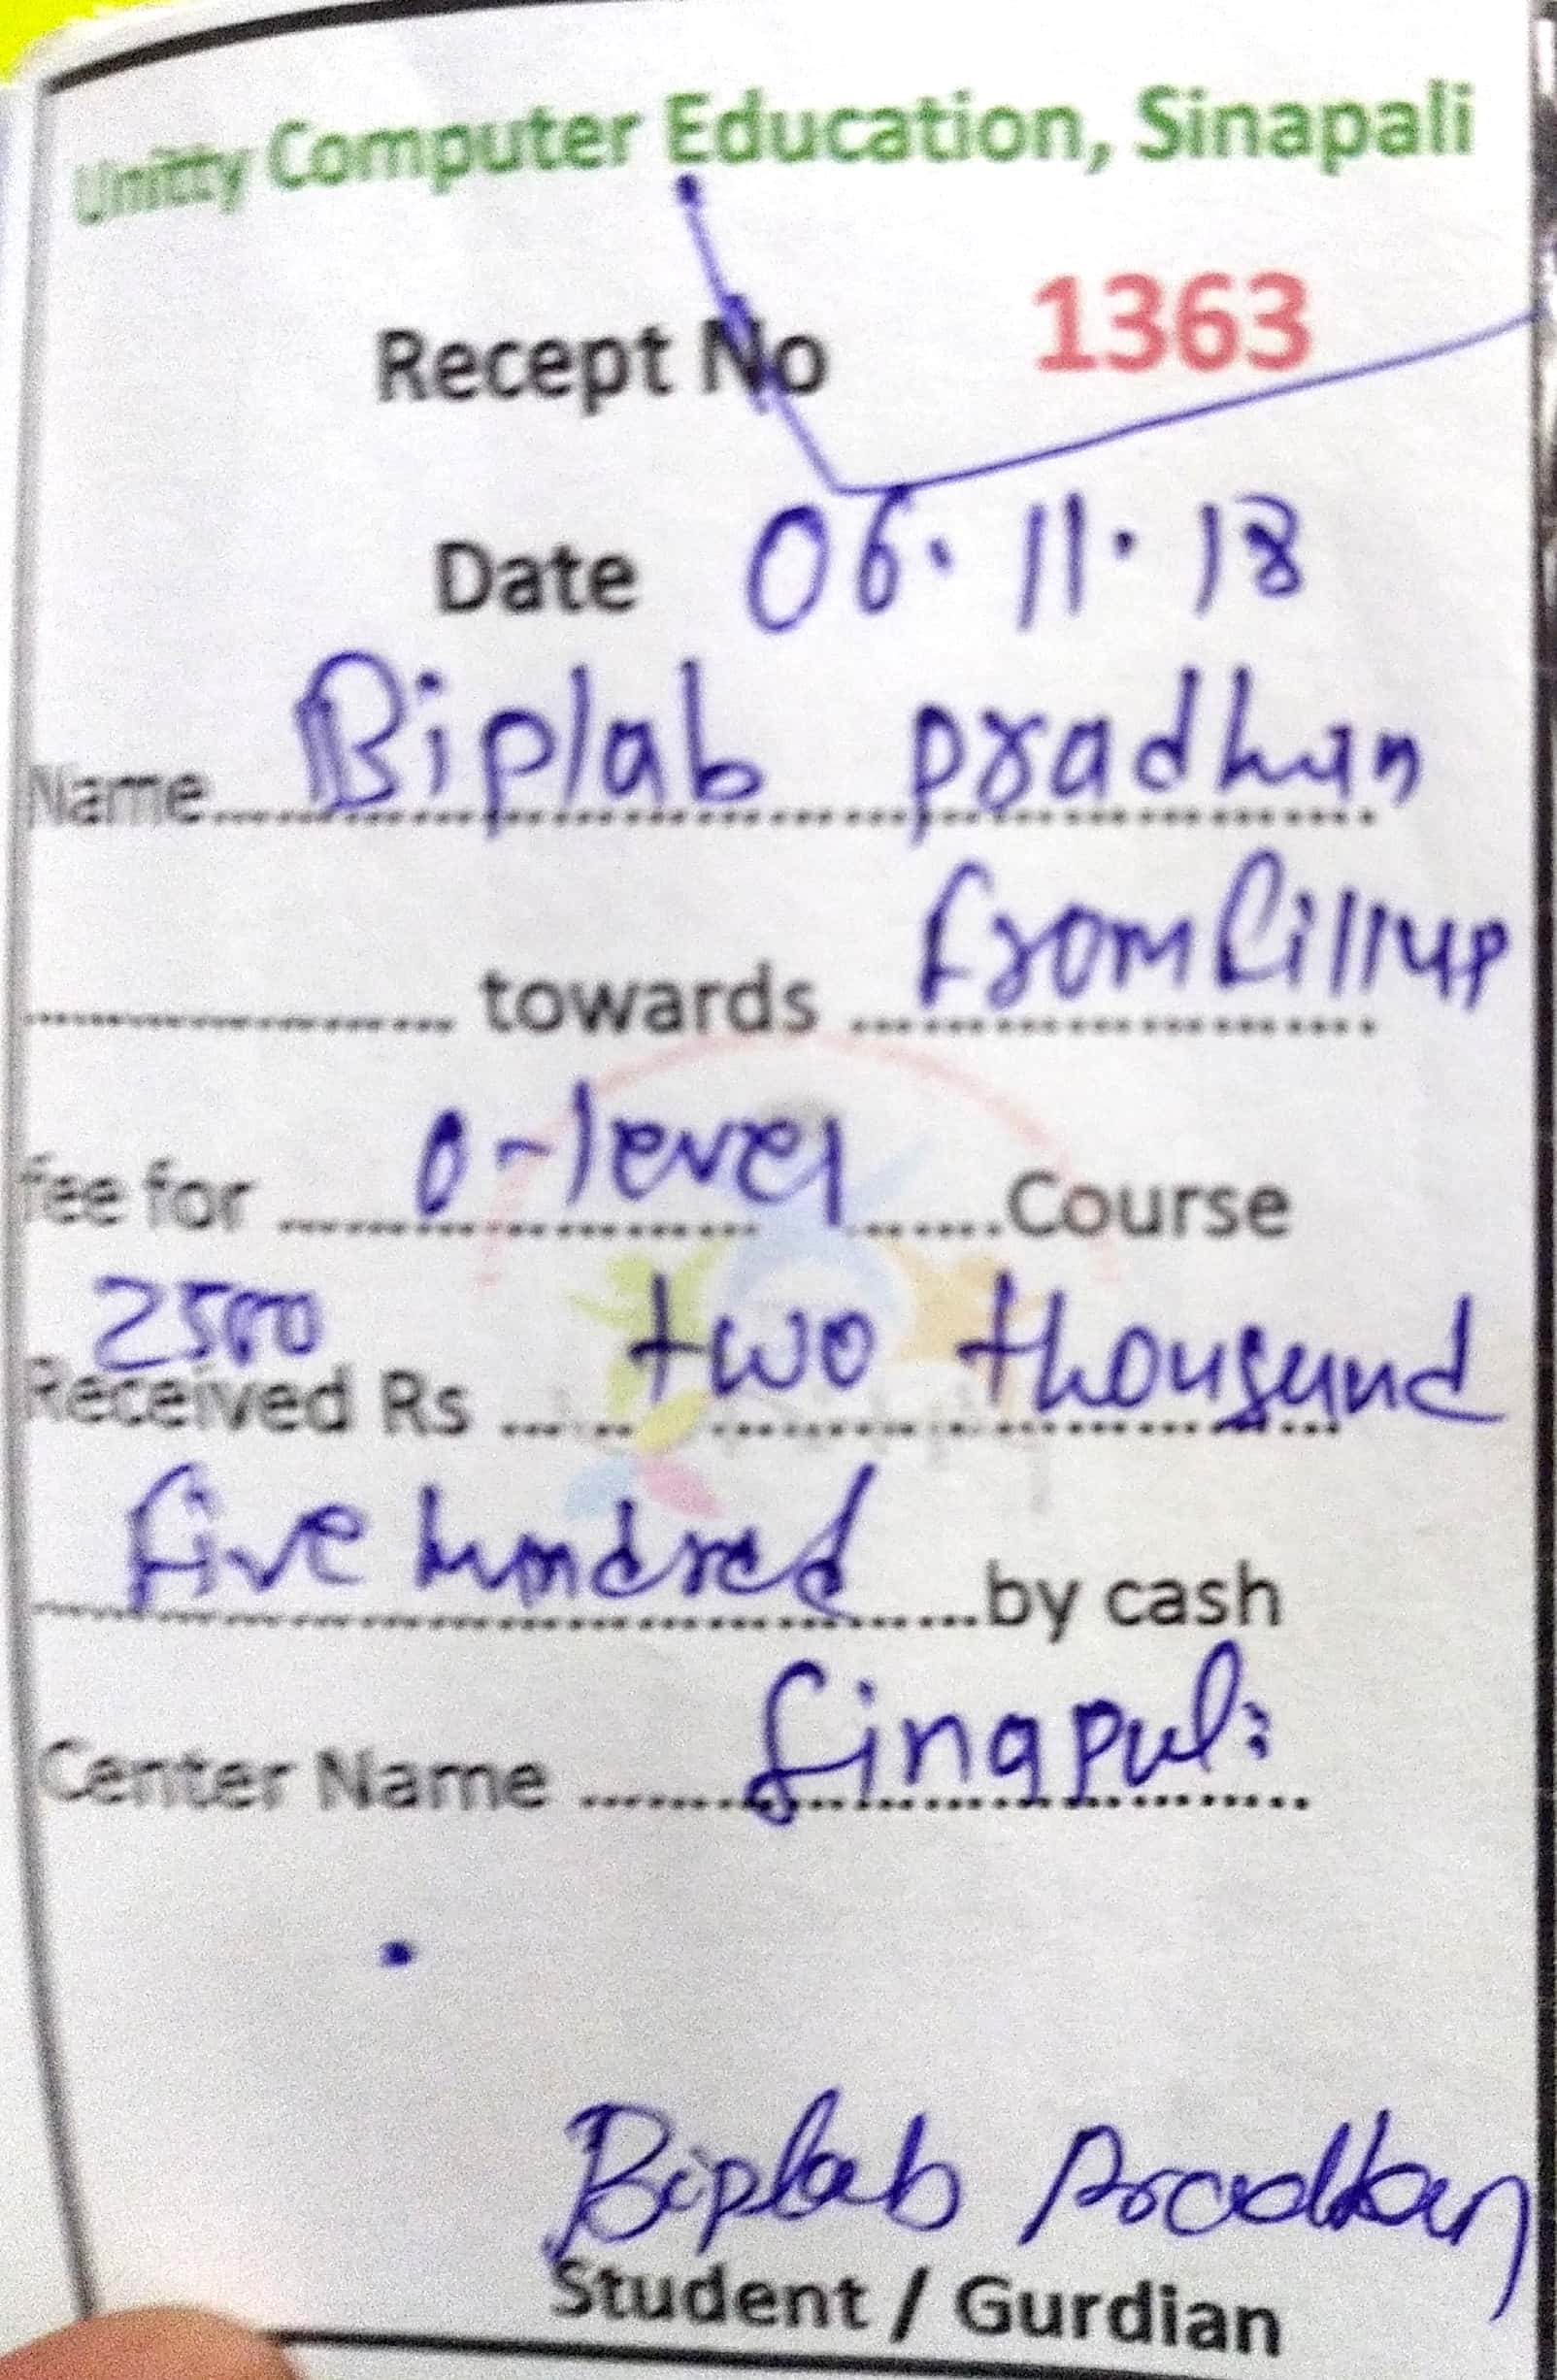 Unitty Computer Education, Sinapali
Recept No 1363
Date 06.11.18
Name Biplab pradhan
towards from fillup
fee for O-level Course
2500
Received Rs two thousand
five hundred by cash
Center Name Sinapali
Biplab Pradhan
Student / Gurdian